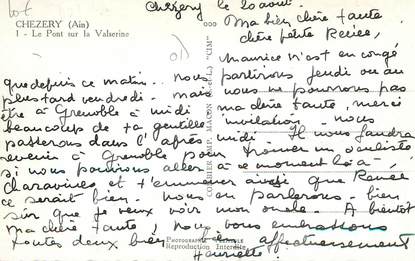 CHEZERY (Ain)
1 - Le Pont sur la Valserine
Chezery le 20 août.
Ma bien chère tante
chère petite Renée,
Maurice n'est en congé
que depuis ce matin. nous partirons jeudi ou au
plus tard vendredi - mais nous ne pourrons pas
être à Grenoble à midi ma chère tante, merci
beaucoup de ta gentille invitation - nous
passerons dans l'après midi. Il nous faudra
revenir à Grenoble pour trouver un oculiste
si nous pouvions aller à ce moment là à
Charavines, et t'emmener ainsi que Renée
ce serait bien. nous en parlerons - bien
sûr que je veux voir mon oncle. A bientôt
ma chère tante, nous vous embrassons
toutes deux bien bien affectueusement
Henriette
COMBIER IMP. MACON "CIM"
PHOTOGRAPHIE VÉRITABLE
Reproduction Interdite